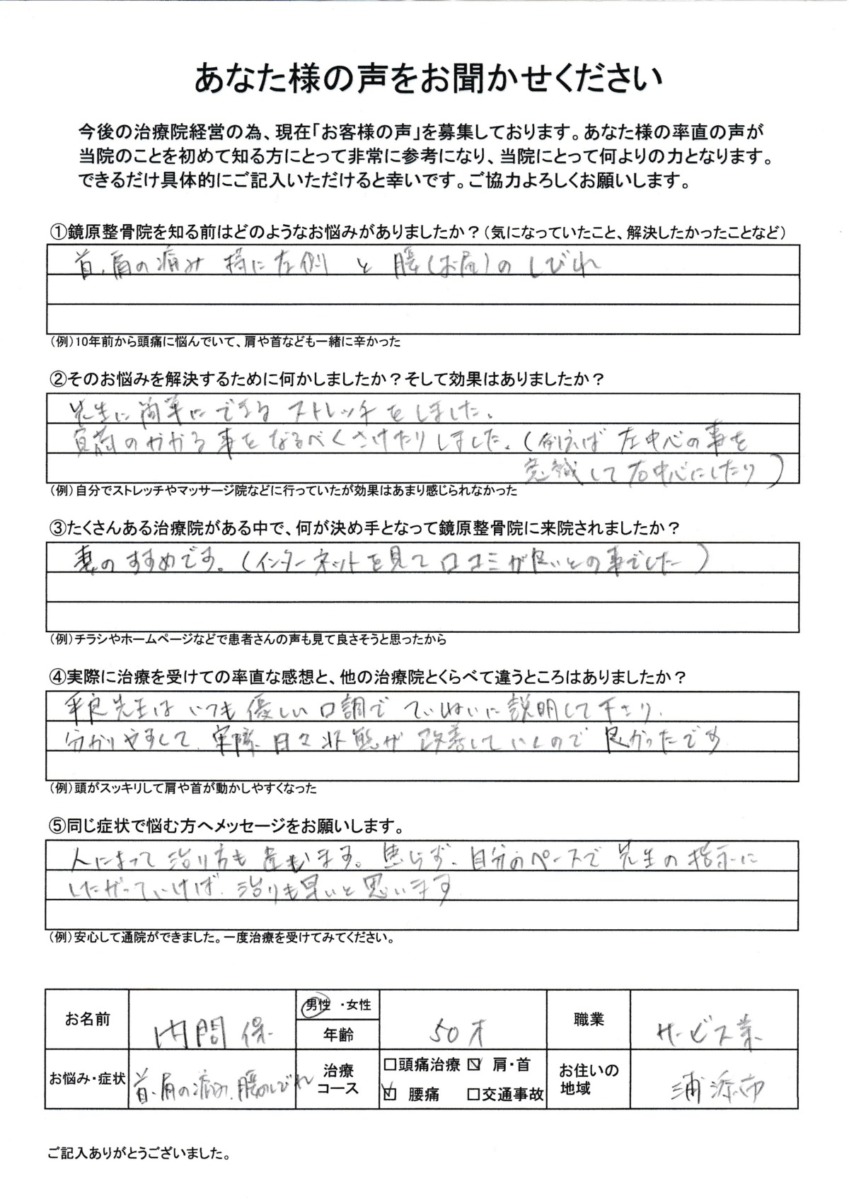 あなた様の声をお聞かせください
今後の治療院経営の為、現在「お客様の声」を募集しております。あなた様の率直の声が
当院のことを初めて知る方にとって非常に参考になり、当院にとって何よりの力となります。
できるだけ具体的にご記入いただけると幸いです。ご協力よろしくお願いします。
①鏡原整骨院を知る前はどのようなお悩みがありましたか？（気になっていたこと、解決したかったことなど）
首、肩の痛み 特に左側 と 腰（お尻）のしびれ
（例）10年前から頭痛に悩んでいて、肩や首なども一緒に辛かった
②そのお悩みを解決するために何かしましたか？そして効果はありましたか？
先生に簡単にできるストレッチをしました、
負荷のかかる事をなるべくさけたりしました。（例えば左中心の事を
意識して右中心にしたり）
（例）自分でストレッチやマッサージ院などに行っていたが効果はあまり感じられなかった
③たくさんある治療院がある中で、何が決め手となって鏡原整骨院に来院されましたか？
妻のすすめです。（インターネットを見て口コミが良いとの事でした）
（例）チラシやホームページなどで患者さんの声も見て良さそうと思ったから
④実際に治療を受けての率直な感想と、他の治療院とくらべて違うところはありましたか？
平良先生はいつも優しい口調でていねいに説明して下さり、
分かりやすくて、実際、日々状態が改善していくので良かったです
（例）頭がスッキリして肩や首が動かしやすくなった
⑤同じ症状で悩む方へメッセージをお願いします。
人によって治り方も違います。焦らず、自分のペースで先生の指示に
したがっていけば、治りも早いと思います
（例）安心して通院ができました。一度治療を受けてみてください。
お名前 内間 保 男性・女性 年齢 50才 職業 サービス業
お悩み・症状 首、肩の痛み、腰のしびれ 治療コース □頭痛治療 ☑ 肩・首 ☑ 腰痛 □交通事故 お住いの地域 浦添市
ご記入ありがとうございました。